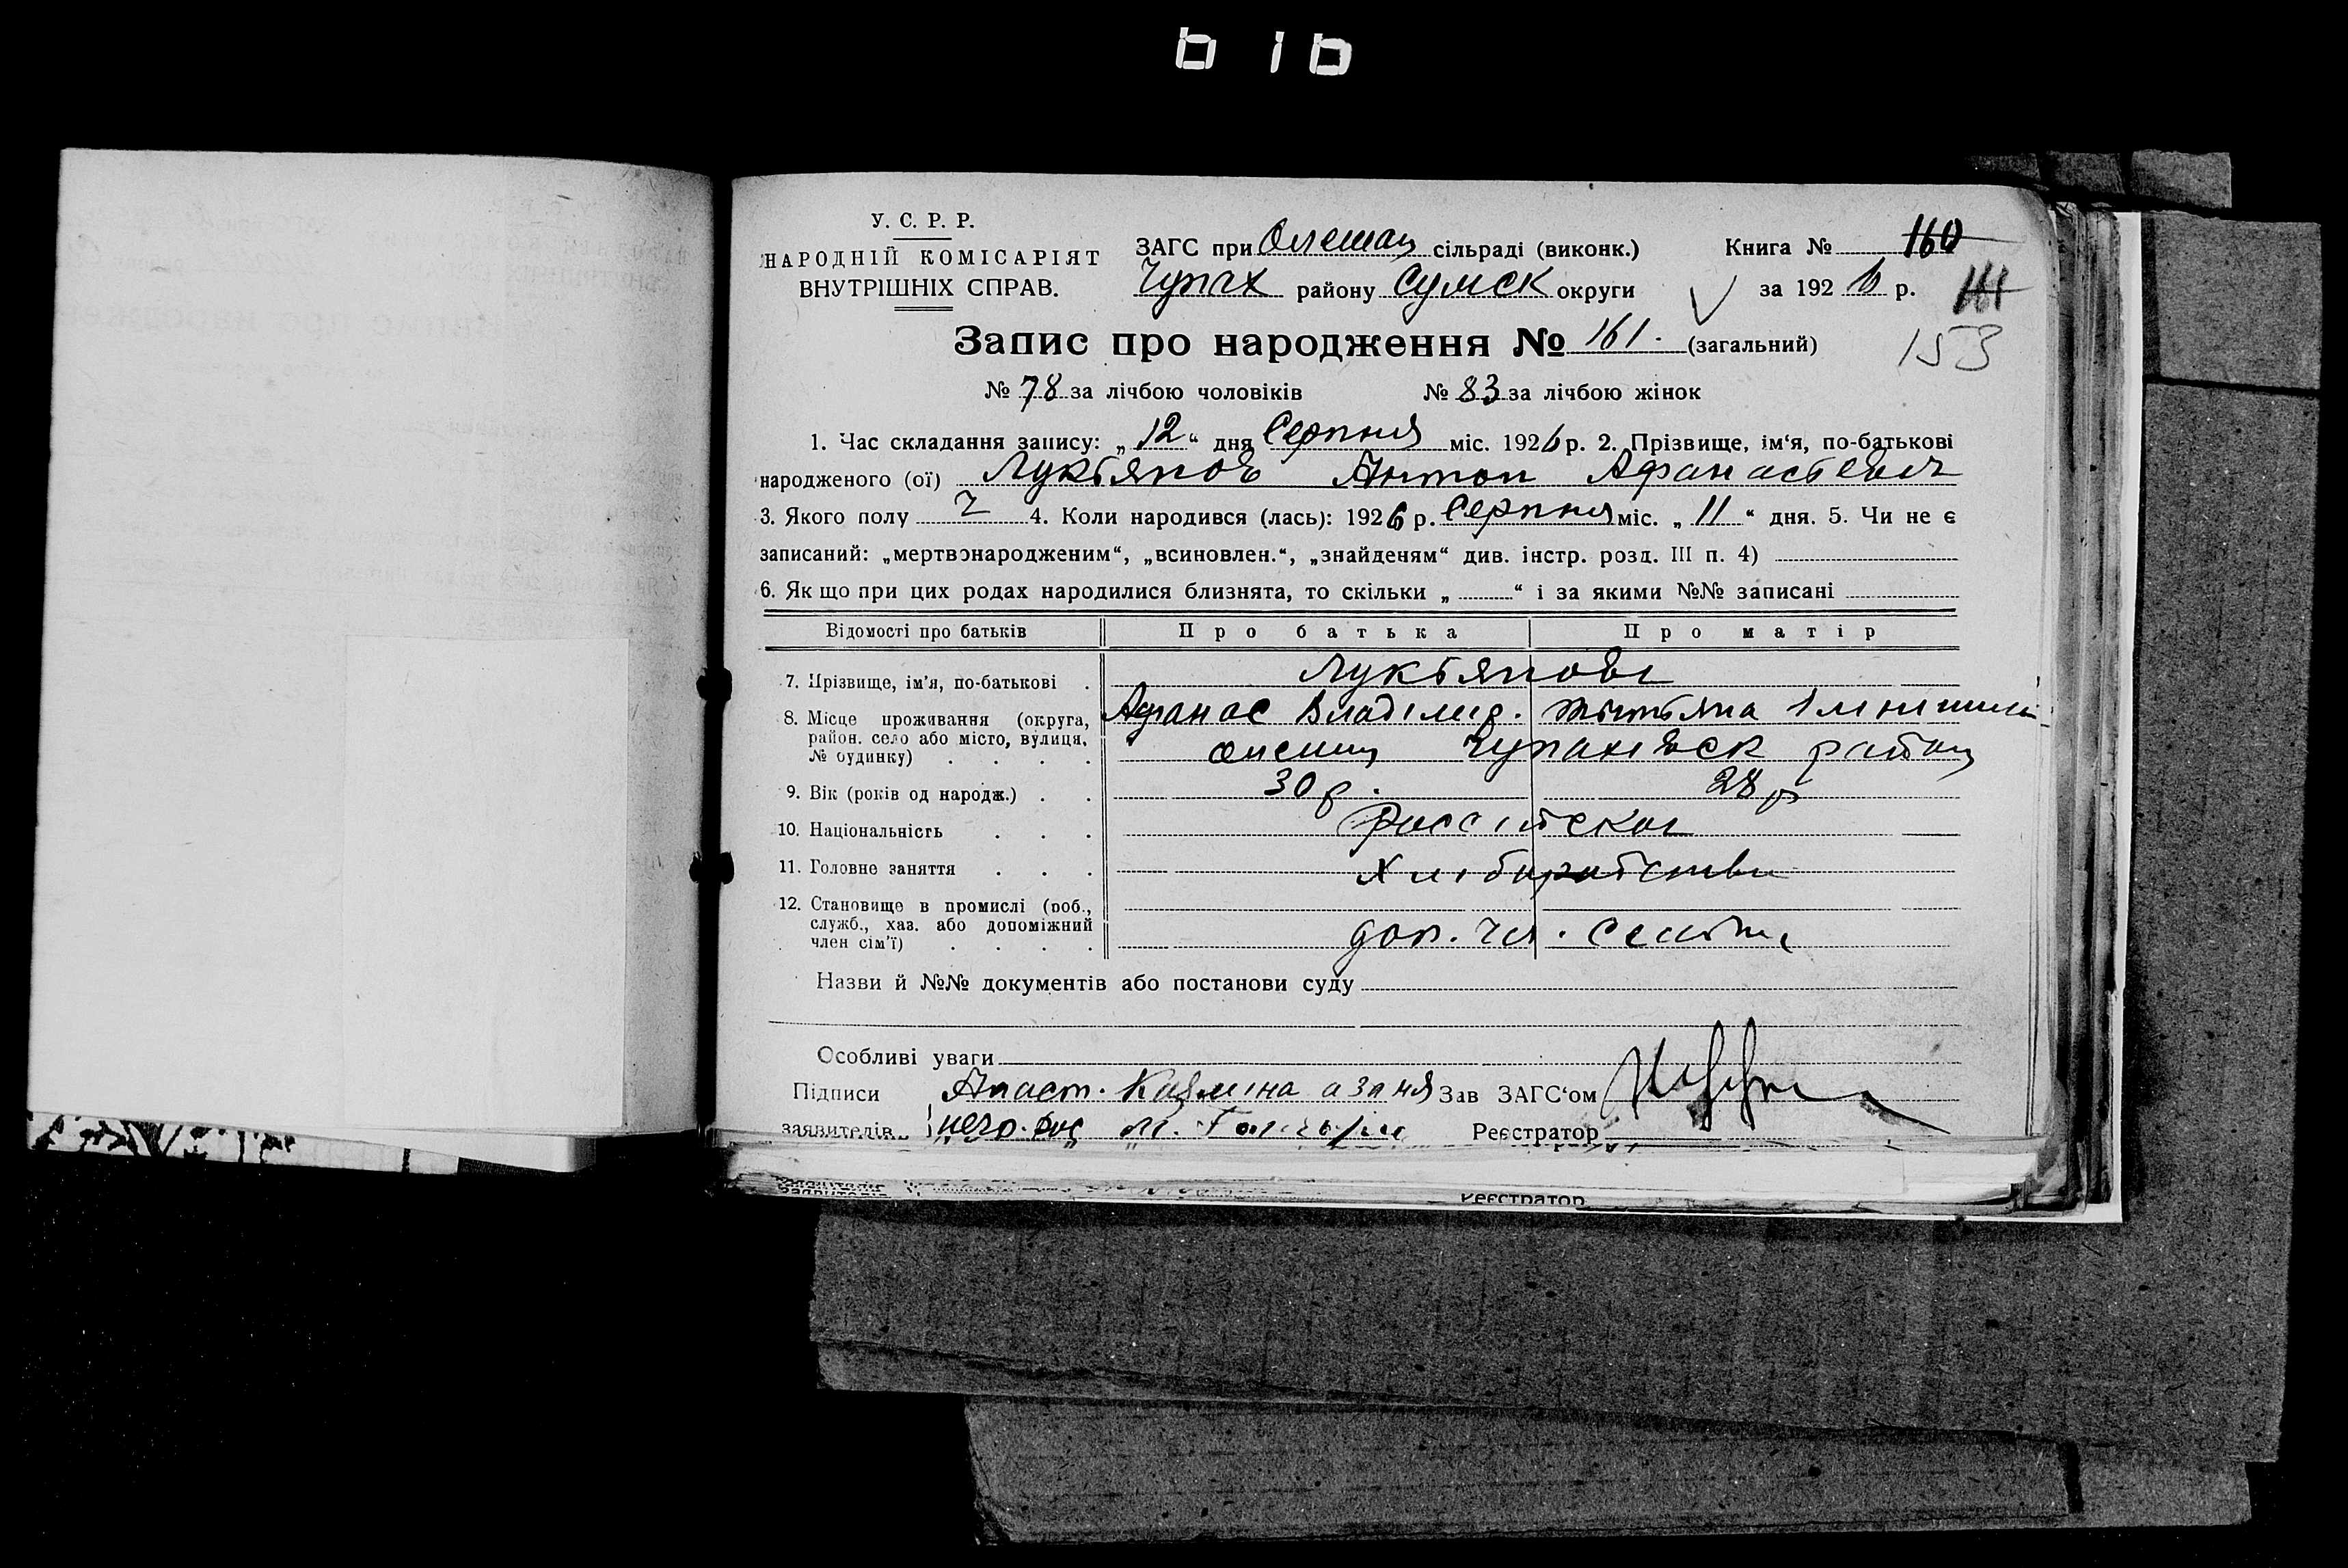 616
У. С. Р. Р.
НАРОДНІЙ КОМІСАРІЯТ
ВНУТРІШНІХ СПРАВ.
ЗАГС при Олешан сільраді (виконк.)
Чупах району Сумск округи
Книга № 160
за 1926 р.
161
153
Запис про народження № 161. (загальний)
№ 78 за лічбою чоловіків № 83 за лічбою жінок
1. Час складання запису: „12“ дня Серпня міс. 1926 р. 2. Прізвище, ім‘я, по-батькові
народженого (ої) Лукьянов Антон Афанасьевич
3. Якого полу Ч 4. Коли народився (лась): 1926 р. Серпня міс. „11“ дня. 5. Чи не є
записаний: „мертвонародженим“, „всиновлен.“, „знайденям“ див. інстр. розд. III п. 4)
6. Як що при цих родах народилися близнята, то скільки „ “ і за якими №№ записані
Відомості про батьків Про батька Про матір
7. Прізвище, ім‘я, по-батькові Лукьянови
Афанас Владімір.
8. Місце проживання (округа,
район. село або місто, вулиця,
№ будинку)
район
9. Вік (років од народж.) 30 р. 28 р
10. Національність Российской
11. Головне заняття Хліборобство
12. Становище в промислі (роб.,
служб., хаз. або допоміжний
член сім‘ї) доп. чл.
Назви й №№ документів або постанови суду
Особливі уваги
Підписи Анаст. а за ня Зав ЗАГС‘ом
заявителів Реєстратор
Реєстратор